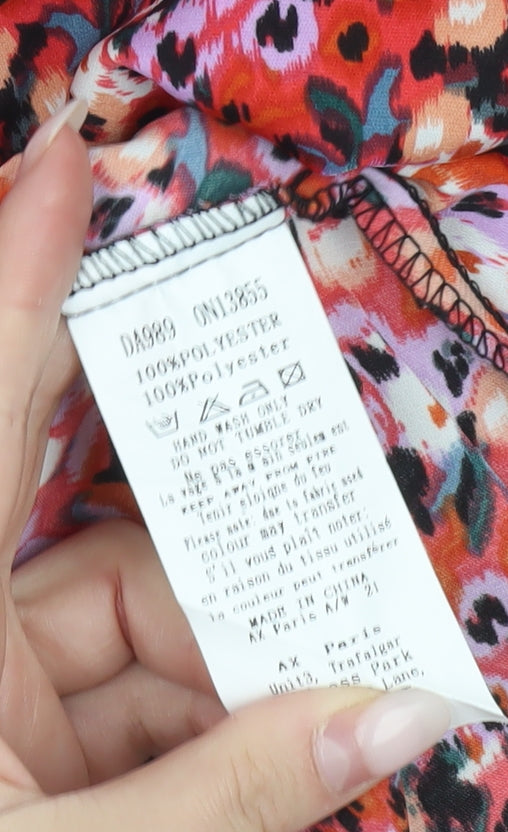 DA989 ON13855
100%POLYESTER
100%Polyester
HAND WASH ONLY
DO NOT TUMBLE DRY
Ne pas essorer
La vage à la main seulem ent
KEEP AWAY FROM FIRE
Tenir éloigne du feu
Please note: due to fabric used
colour may transfer
S'il vous plaît noter:
en raison du tissu utilisé
la couleur peut transférer
MADE IN CHINA
AX Paris A/W 21
AX Paris
Unit3, Trafalgar
ess Park
Lane,